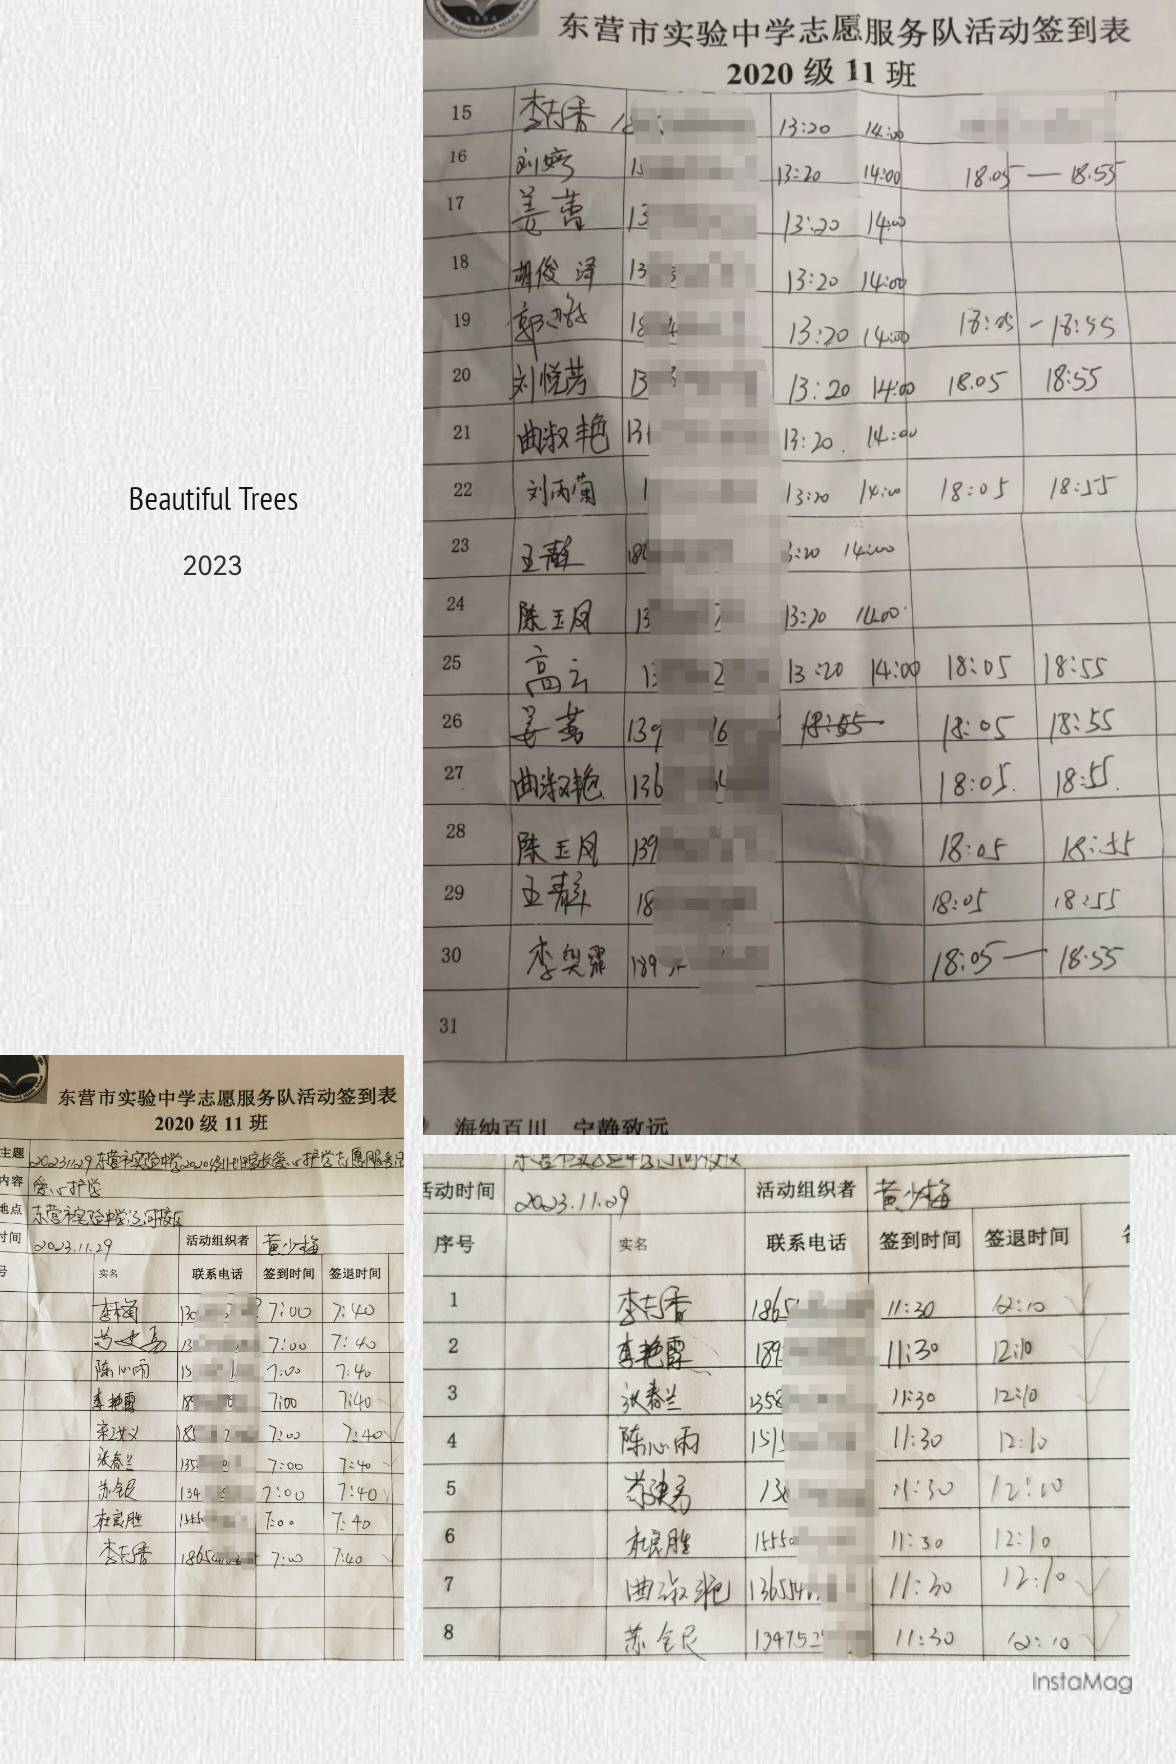 Beautiful Trees
2023
东营市实验中学志愿服务队活动签到表
2020 级 11 班
15 13:20 14:00
16 刘婷 13:20 14:00 18:05 — 18:55
17 姜蕾 13 13:20 14:00
18 胡俊泽 13 13:20 14:00
19 18 13:20 14:00 18:05 - 18:55
20 刘悦芳 13 13:20 14:00 18.05 18:55
21 曲淑艳 13 13:20. 14:00
22 刘丙菊 1 13:20 14:00 18:05 18:55
23 王静 3:20 14:00
24 陈玉凤 13 13:20 14:00
25 高云 13 2 13:20 14:00 18:05 18:55
26 139 16 18:55 18:05 18:55
27 曲淑艳 136 18:05. 18:55.
28 陈玉凤 139 18:05 18:55
29 王静 18 18:05 18:55
30 189 18:05 — 18:55
31
海纳百川 宁静致远
东营市实验中学志愿服务队活动签到表
2020 级 11 班
主题 20231129东营市实验中学2020级11班家长爱心护学志愿服务活
内容 爱心护学
地点 东营市实验中学
时间 2023.11.29 活动组织者 黄少梅
号 实名 联系电话 签到时间 签退时间
7:00 7:40
13 7:00 7:40
陈心雨 15 7:00 7:40
李艳霞 18 7:00 7:40
185 7:00 7:40
张春兰 135 7:00 7:40
苏全民 134 7:00 7:40
杜良胜 1555 7:00 7:40
1865 7:00 7:40
活动时间 2023.11.29 活动组织者 黄少梅
序号 实名 联系电话 签到时间 签退时间
1 1865 11:30 12:10
2 李艳霞 189 11:30 12:10
3 张春兰 1358 11:30 12:10
4 陈心雨 1515 11:30 12:10
5 13 11:30 12:10
6 杜良胜 1555 11:30 12:10
7 曲淑艳 13654 11:30 12:10
8 苏全民 134752 11:30 12:10
InstaMag